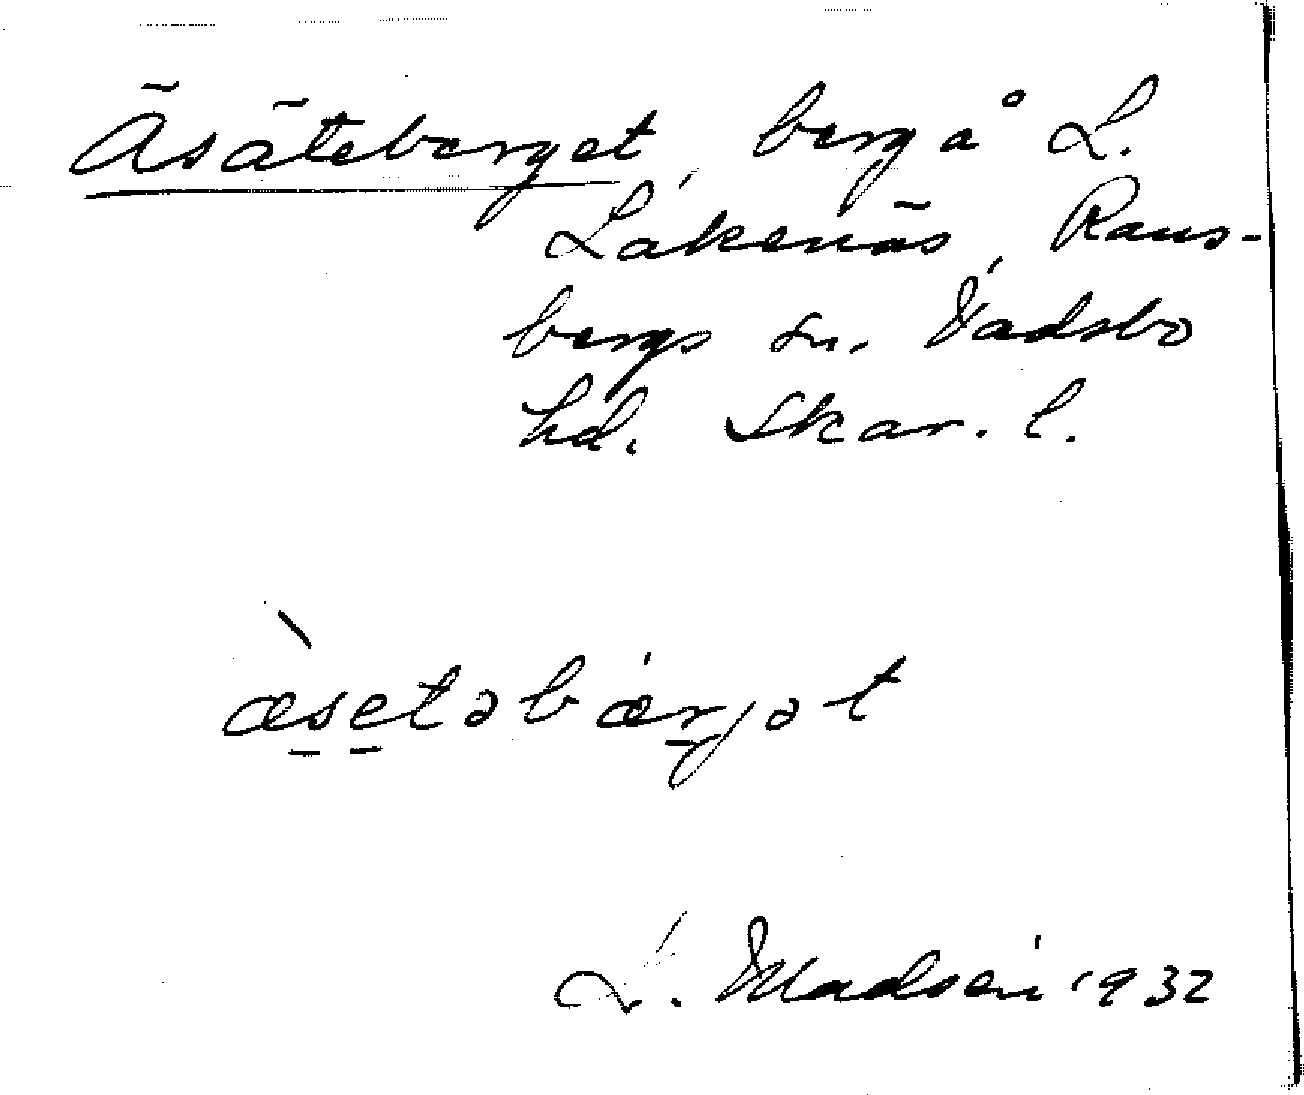 Äsäteberget berg å L.
Låkenäs, Rans-
bergs sn. Vadsbo
hd. Skar. l.
æ̀setəbǽrjət
L. Madsén 1932